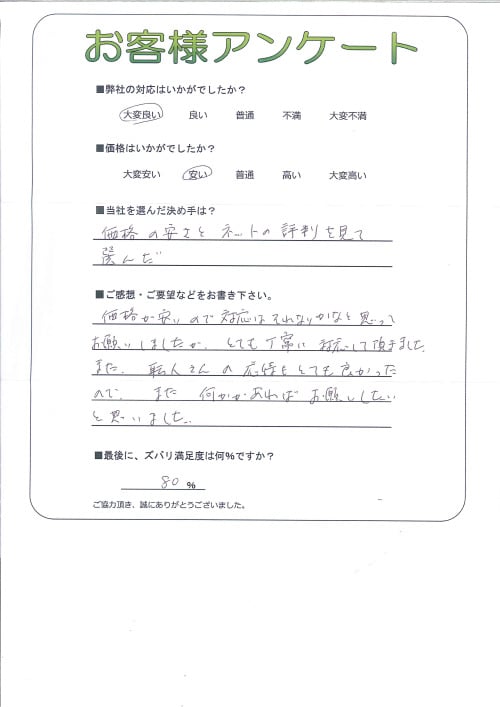 お客様アンケート
■弊社の対応はいかがでしたか？
大変良い 良い 普通 不満 大変不満
■価格はいかがでしたか？
大変安い 安い 普通 高い 大変高い
■当社を選んだ決め手は？
価格の安さと ネットの評判を見て
選んだ
■ご感想・ご要望などをお書き下さい。
価格が安いので対応はそれなりかなと思って
お願いしましたが、とても丁寧に対応して頂きました。
また、職人さんの応待もとても良かった
ので、また 何かあればお願いしたい
と思いました。
■最後に、ズバリ満足度は何％ですか？
80 ％
ご協力頂き、誠にありがとうございました。